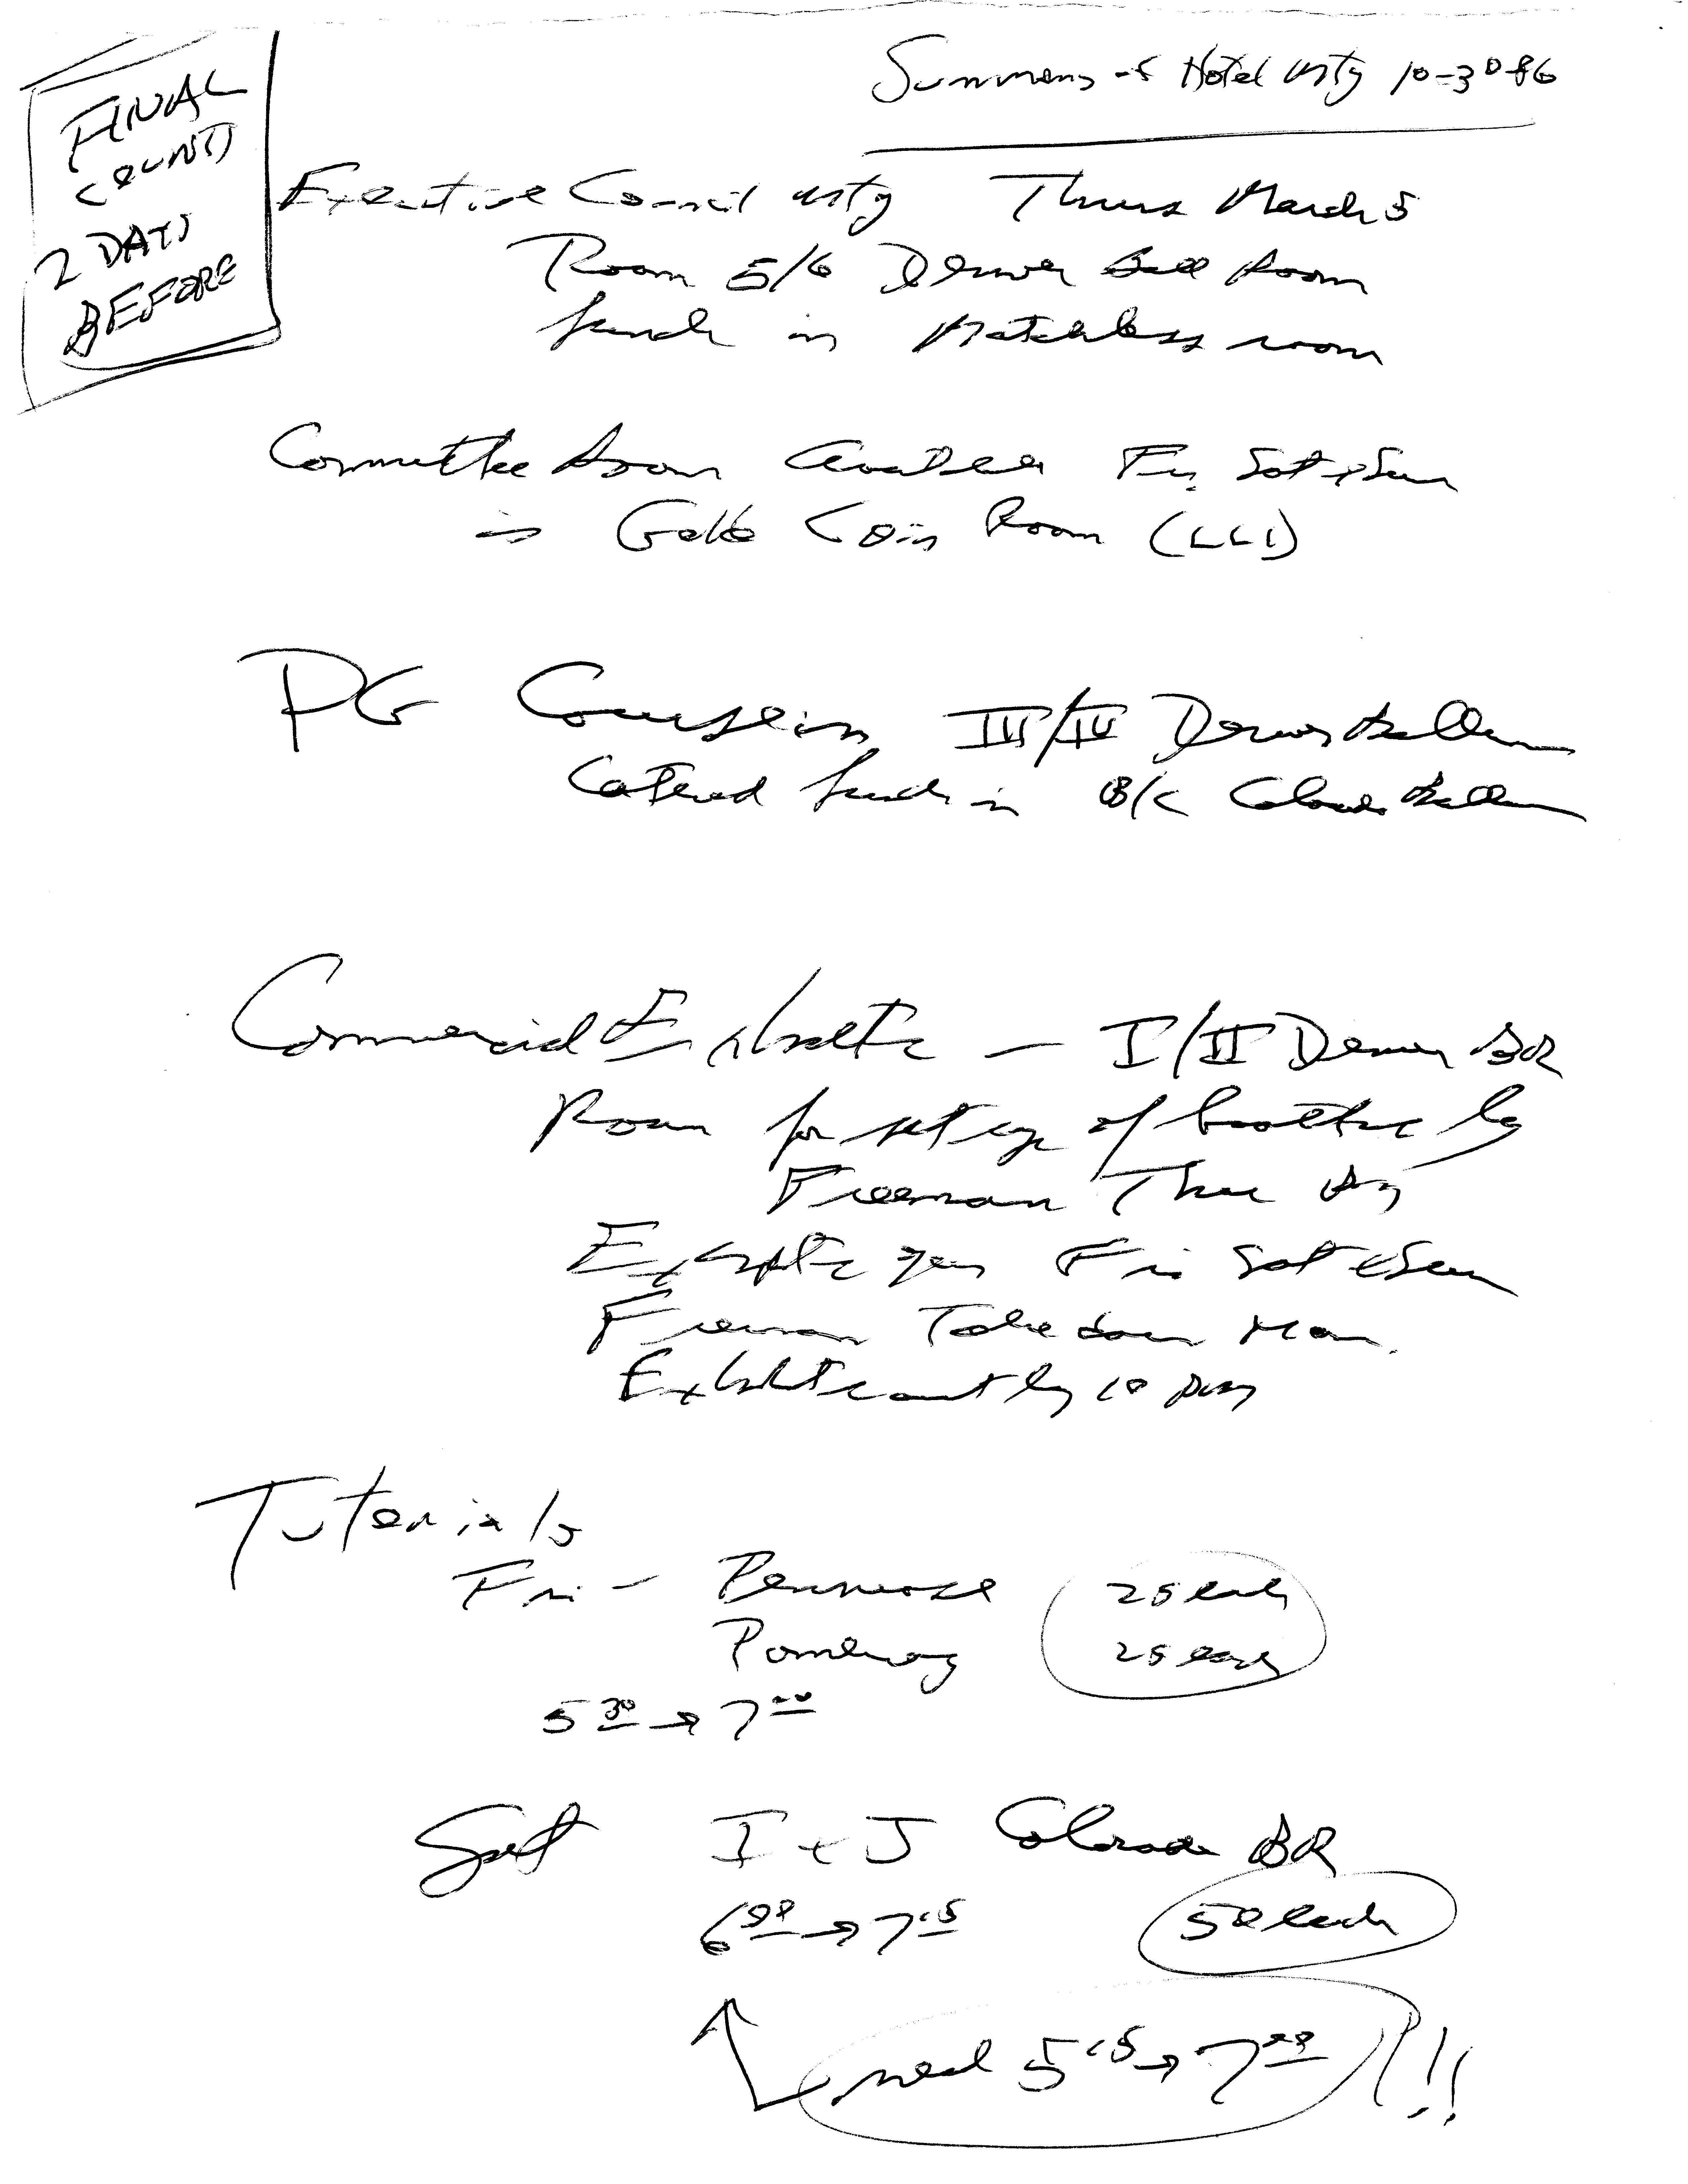 FINAL
COUNT)
2 DAYS
BEFORE
Summary of Hotel mtg 10-30-86
Executive Council mtg Thurs March 5
Room 5/6 Denver Ball Room
lunch in Matchless room
Committee Room available Fri, Sat + Sun
in Gold Coin Room (LLI)
PG Course in III/IV Denver Ballrm
Catered lunch in B/C Colorado Ballrm
Commercial Exhibits — I/II Denver BR
Room for set up of booths by
Freeman Thur
Exhibits open Fri Sat + Sun
Freeman Take down Mon.
Exhibits out by 10 pm
Tutorials
Fri - Penrose 25 each
Pomeroy 25 each
5 30 → 7 00
Sat I + J Colorado BR
6 00 → 7 15 50 each
need 5 15 → 7 00 !!!